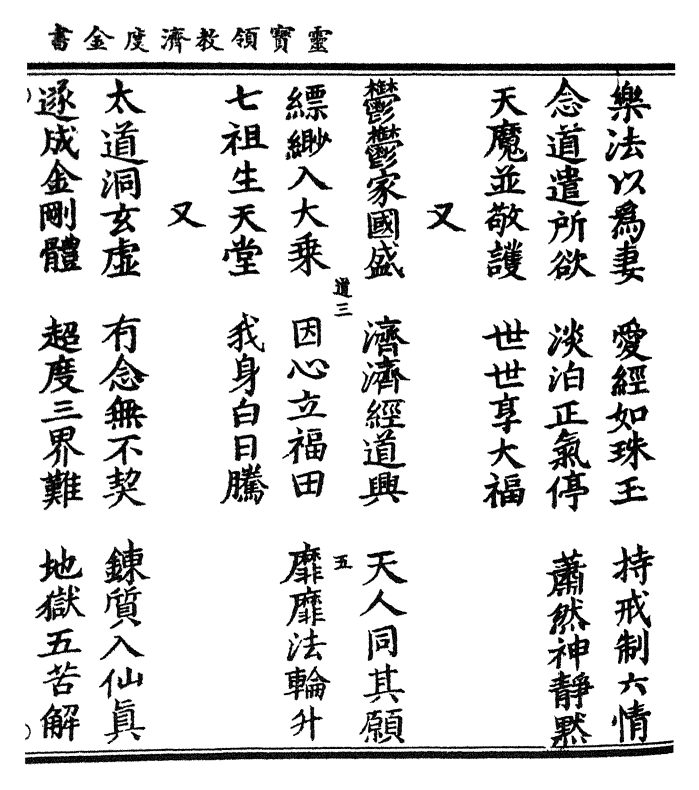 靈寶領教濟度金書
樂法以爲妻　愛經如珠玉　持戒制六情
念道遣所欲　淡泊正氣停　蕭然神靜默
天魔並敬護　世世享大福
又
鬱鬱家國盛　濟濟經道興　天人同其願
道三　五
縹緲入大乗　因心立福田　靡靡法輪升
七祖生天堂　我身白日騰
又
太道洞玄虛　有念無不契　鍊質入仙眞
遂成金剛體　超度三界難　地獄五苦解